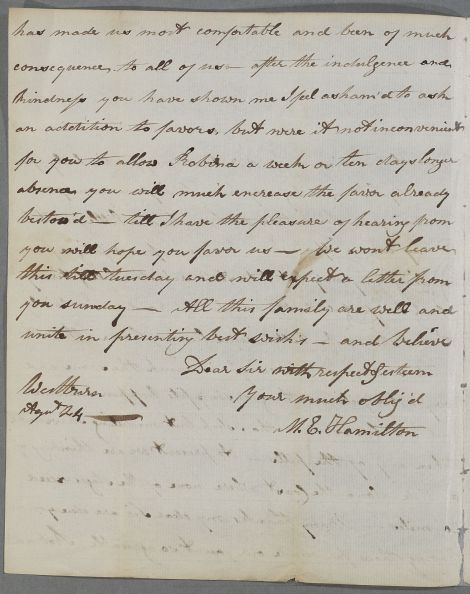 has made us most comfortable and been of much
consequence to all of us — after the indulgence and
kindness you have shown me I feel asham'd to ask
an addition to favors, but were it not inconvenient
for you to allow Robina a week or ten days longer
absence you will much encrease the favor already
bestow'd — till I have the pleasure of hearing from
you will hope you favor us — We wont leave
this till tuesday and will expect a letter from
you sunday — All this family are well and
unite in presenting best wish's — and believe
Dear Sir with respect & esteem
Your much oblig'd
M. E. Hamilton
Augt 24